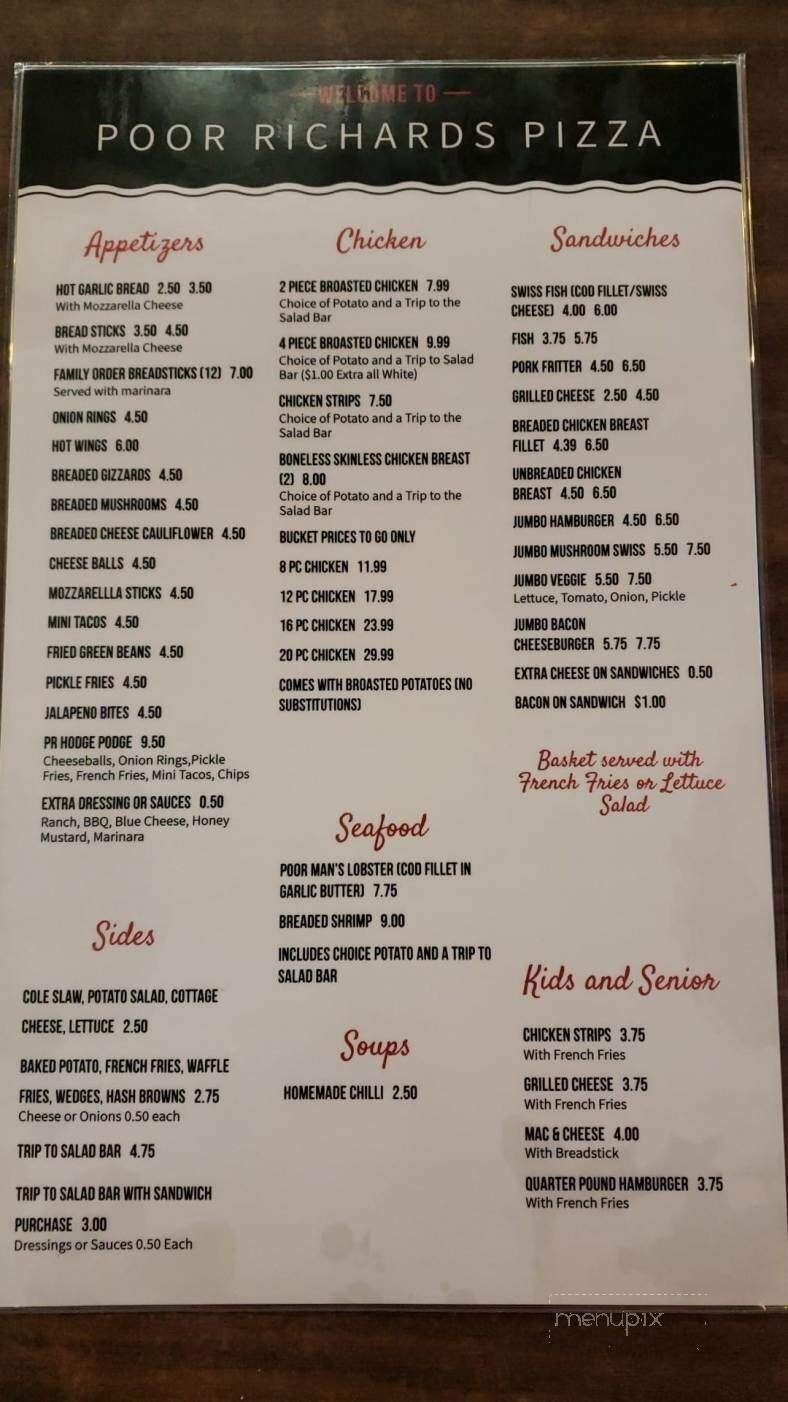 WELCOME TO
POOR RICHARDS PIZZA
Appetizers
HOT GARLIC BREAD 2.50 3.50
With Mozzarella Cheese
BREAD STICKS 3.50 4.50
With Mozzarella Cheese
FAMILY ORDER BREADSTICKS (12) 7.00
Served with marinara
ONION RINGS 4.50
HOT WINGS 6.00
BREADED GIZZARDS 4.50
BREADED MUSHROOMS 4.50
BREADED CHEESE CAULIFLOWER 4.50
CHEESE BALLS 4.50
MOZZARELLLA STICKS 4.50
MINI TACOS 4.50
FRIED GREEN BEANS 4.50
PICKLE FRIES 4.50
JALAPENO BITES 4.50
PR HODGE PODGE 9.50
Cheeseballs, Onion Rings,Pickle
Fries, French Fries, Mini Tacos, Chips
EXTRA DRESSING OR SAUCES 0.50
Ranch, BBQ, Blue Cheese, Honey
Mustard, Marinara
Sides
COLE SLAW, POTATO SALAD, COTTAGE
CHEESE, LETTUCE 2.50
BAKED POTATO, FRENCH FRIES, WAFFLE
FRIES, WEDGES, HASH BROWNS 2.75
Cheese or Onions 0.50 each
TRIP TO SALAD BAR 4.75
TRIP TO SALAD BAR WITH SANDWICH
PURCHASE 3.00
Dressings or Sauces 0.50 Each
Chicken
2 PIECE BROASTED CHICKEN 7.99
Choice of Potato and a Trip to the
Salad Bar
4 PIECE BROASTED CHICKEN 9.99
Choice of Potato and a Trip to Salad
Bar ($1.00 Extra all White)
CHICKEN STRIPS 7.50
Choice of Potato and a Trip to the
Salad Bar
BONELESS SKINLESS CHICKEN BREAST
(2) 8.00
Choice of Potato and a Trip to the
Salad Bar
BUCKET PRICES TO GO ONLY
8 PC CHICKEN 11.99
12 PC CHICKEN 17.99
16 PC CHICKEN 23.99
20 PC CHICKEN 29.99
COMES WITH BROASTED POTATOES (NO
SUBSTITUTIONS)
Seafood
POOR MAN'S LOBSTER (COD FILLET IN
GARLIC BUTTER) 7.75
BREADED SHRIMP 9.00
INCLUDES CHOICE POTATO AND A TRIP TO
SALAD BAR
Soups
HOMEMADE CHILLI 2.50
Sandwiches
SWISS FISH (COD FILLET/SWISS
CHEESE) 4.00 6.00
FISH 3.75 5.75
PORK FRITTER 4.50 6.50
GRILLED CHEESE 2.50 4.50
BREADED CHICKEN BREAST
FILLET 4.39 6.50
UNBREADED CHICKEN
BREAST 4.50 6.50
JUMBO HAMBURGER 4.50 6.50
JUMBO MUSHROOM SWISS 5.50 7.50
JUMBO VEGGIE 5.50 7.50
Lettuce, Tomato, Onion, Pickle
JUMBO BACON
CHEESEBURGER 5.75 7.75
EXTRA CHEESE ON SANDWICHES 0.50
BACON ON SANDWICH $1.00
Basket served with
French Fries or Lettuce
Salad
Kids and Senior
CHICKEN STRIPS 3.75
With French Fries
GRILLED CHEESE 3.75
With French Fries
MAC & CHEESE 4.00
With Breadstick
QUARTER POUND HAMBURGER 3.75
With French Fries
menupix